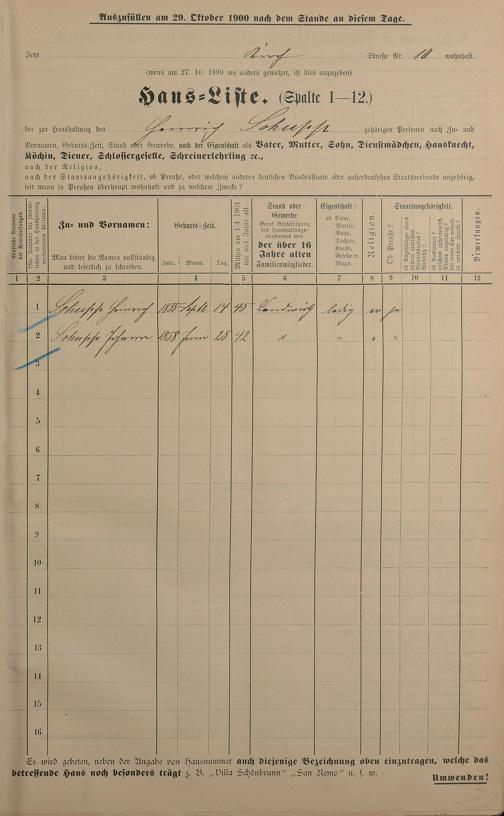 Auszufüllen am 29. Oktober 1900 nach dem Stande an diesem Tage.
Jetzt Kirch Straße Nr. 10 wohnhaft.
(wenn am 27. 10. 1899 wo anders gewohnt, ist dies anzugeben)
Haus-Liste. (Spalte 1—12.)
der zur Haushaltung des Heinrich gehörigen Personen nach Zu- und
Vornamen, Geburts-Zeit, Stand oder Gewerbe, nach der Eigenschaft als Vater, Mutter, Sohn, Dienstmädchen, Hausknecht,
Köchin, Diener, Schlossergeselle, Schreinerlehrling ꝛc.,
nach der Religion,
nach der Staatsangehörigkeit, ob Preuße, oder welchem anderen deutschen Bundesstaate oder außerdeutschen Staatsverbande angehörig,
seit wann in Preußen überhaupt wohnhaft und zu welchem Zwecke?
Zu- und Vornamen:
Man bittet die Namen vollständig
und leserlich zu schreiben.
Geburts-Zeit.
Jahr. Monat. Tag.
Mithin am 1.4.1901
wie viel Jahre alt.
Stand oder
Gewerbe
der über 16
Jahre alten
Familienmitglieder.
Eigenschaft:
ob Vater,
Mutter,
Sohn,
Tochter,
Knecht,
Geselle ꝛc.
Magd.
Religion.
Staatsangehörigkeit.
Ob Preuße?
Bemerkungen.
1 2 3 4 5 6 7 8 9 10 11 12
1 Heinrich 1855 Septb 14 45 Landwirth ledig ev ja
2 Johann 1858 Juni 25 42 " " " "
3
4
5
6
7
8
9
10
11
12
13
14
15
16
Es wird gebeten, neben der Angabe von Hausnummer auch diejenige Bezeichnung oben einzutragen, welche das
betreffende Haus noch besonders trägt z. B. „Villa Schönbrunn" „San Remo" u. s. w.
Umwenden!